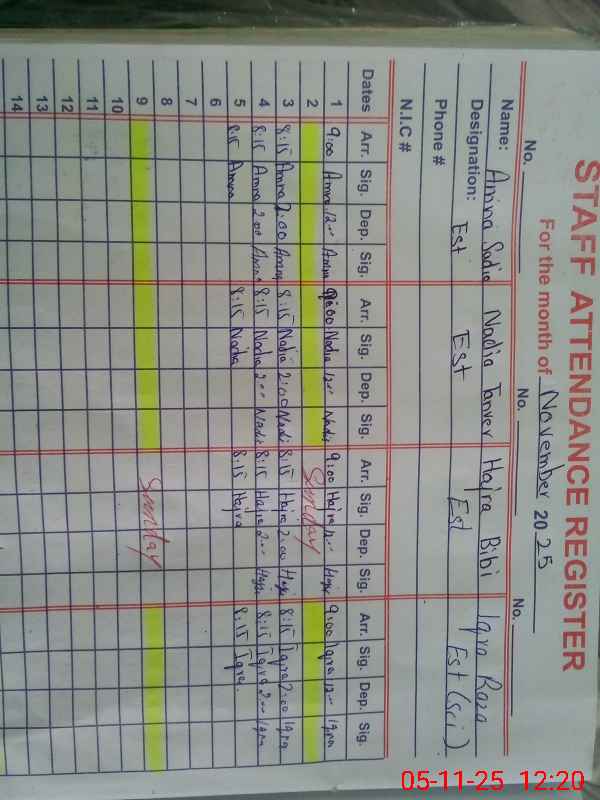 STAFF ATTENDANCE REGISTER
For the month of November 2025
No. No. No.
Name: Amina Sadia Nadia Tanver Hajra Bibi Iqra Raza
Designation: Est Est Est Est (sci)
Phone #
N.I.C #
Dates Arr. Sig. Dep. Sig. Arr. Sig. Dep. Sig. Arr. Sig. Dep. Sig. Arr. Sig. Dep. Sig.
1 9:00 Amna 12-- Amna 9:00 Nadia 12-- Nadia 9:00 Hajra 12-- Hajr 9:00 Iqra 12-- Iqra
2 Sunday
3 8:15 Amna 2:00 Amna 8:15 Nadia 2:00 Nadi 8:15 Hajra 2:00 Hajr 8:15 Iqra 2:00 Iqra
4 8:15 Amna 2:00 Amna 8:15 Nadia 2-- Nadia 8:15 Hajra 2-- Hajr 8:15 Iqra 2-- Iqra
5 8:15 Amna 8:15 Nadia 8:15 Hajra 8:15 Iqra
6
7
8
9 Sunday
10
11
12
13
14
05-11-25 12:20